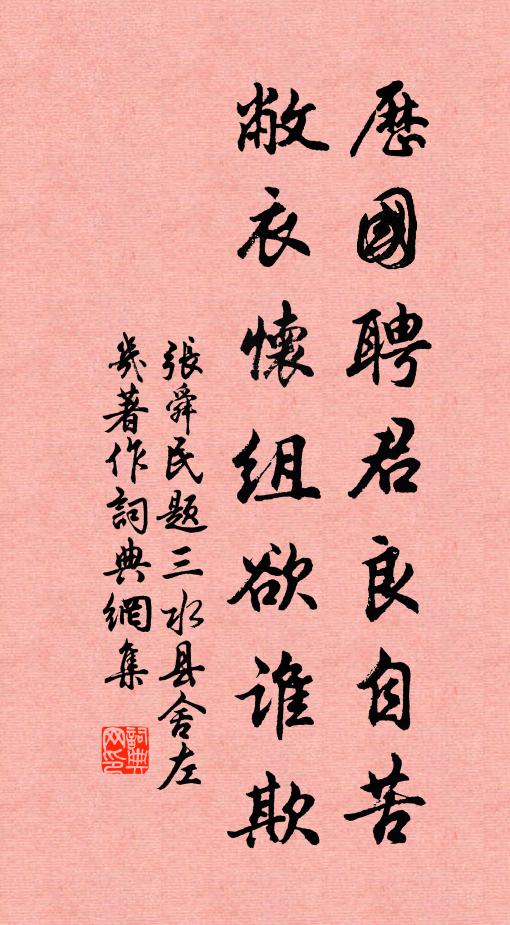 歷國聘君良自苦
敝衣懷組欲誰欺
張舜民題三水县舍左
幾著作詞典網集
詞典
网印